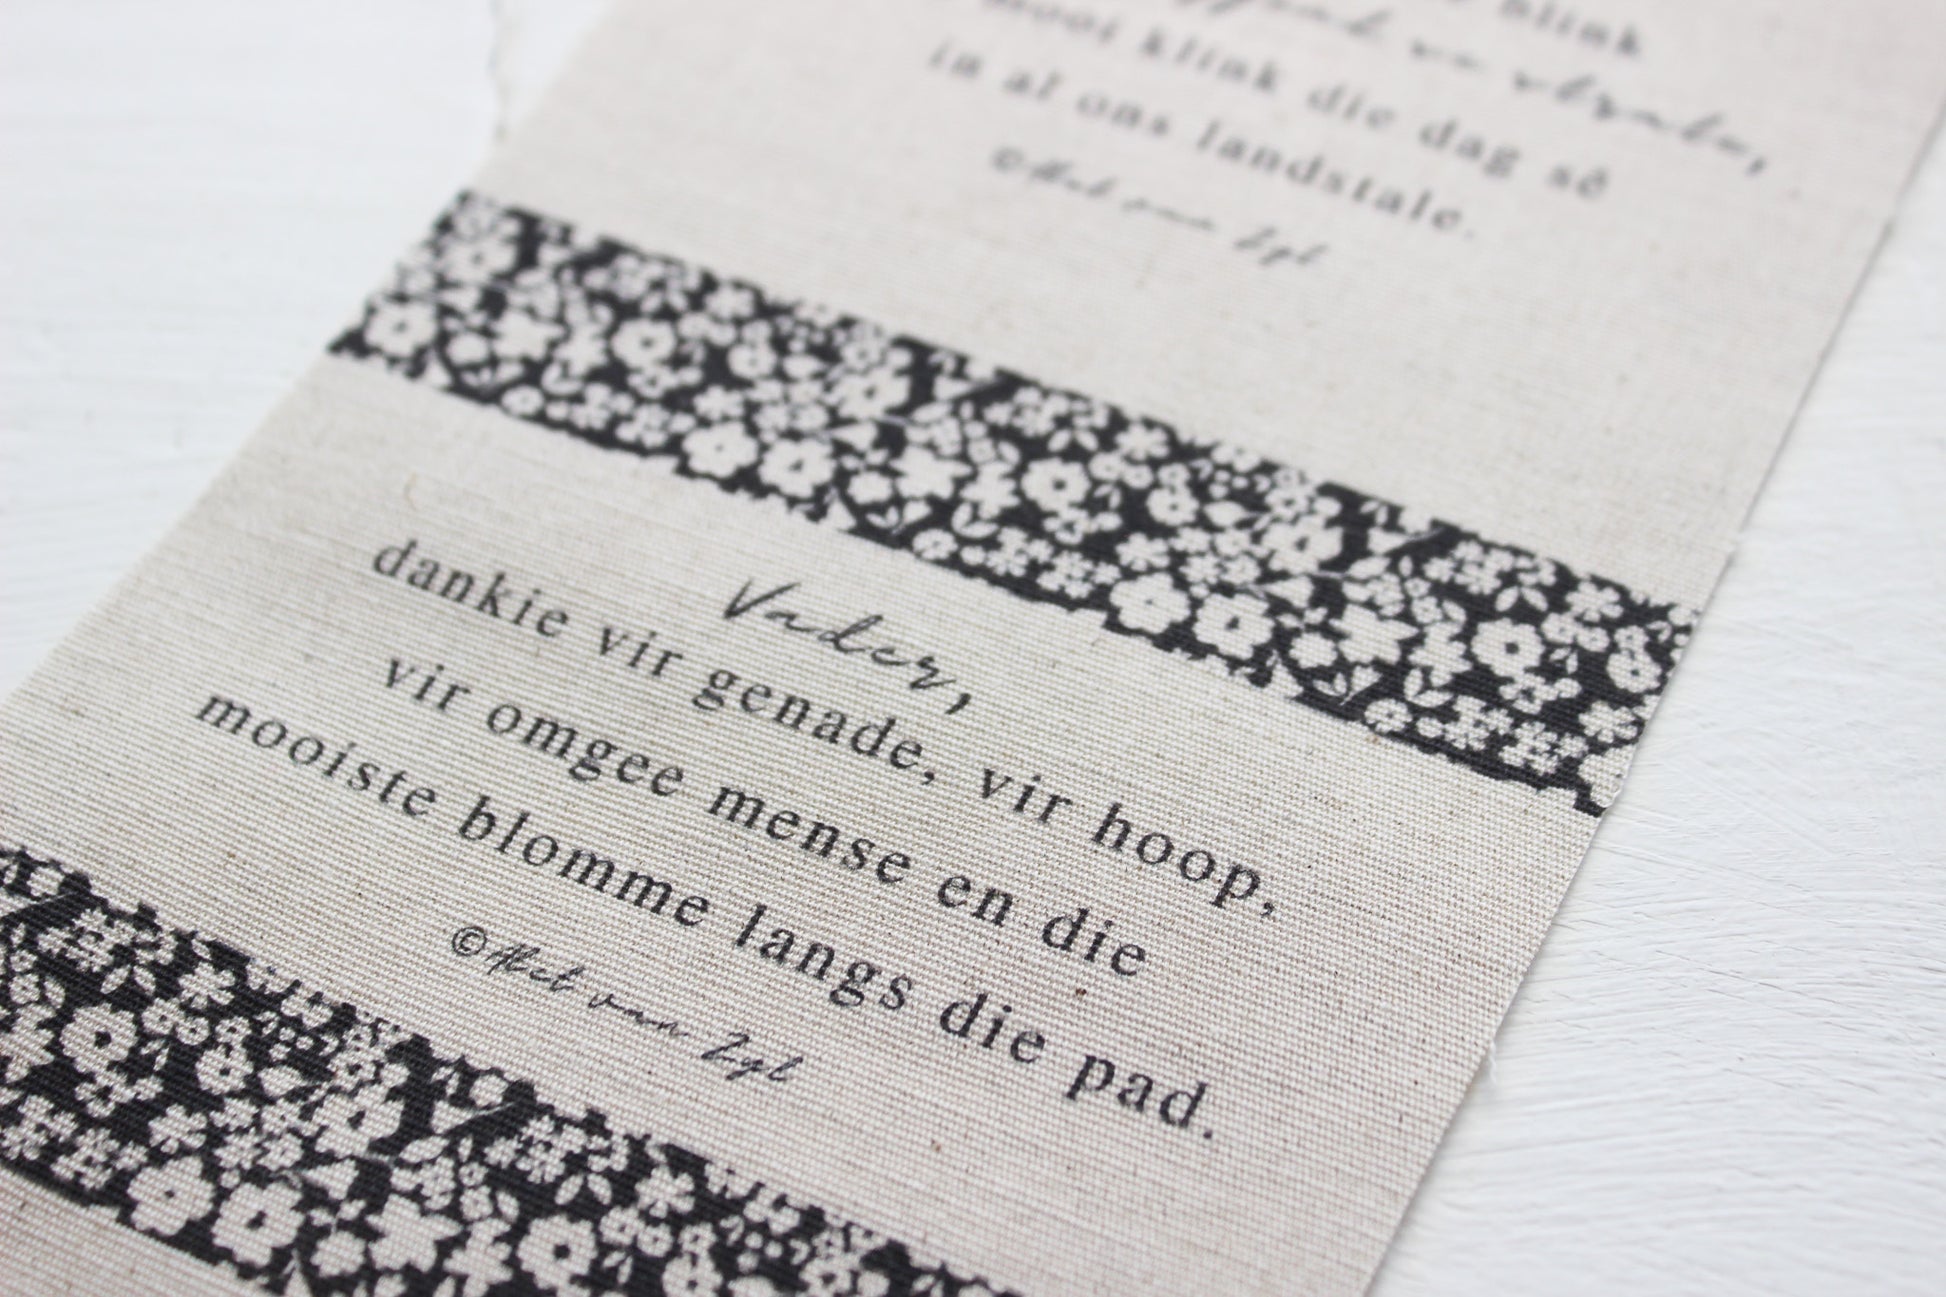 blink
mooi klink die dag sê
in al ons landstale.
Vader,
dankie vir genade, vir hoop,
vir omgee mense en die
mooiste blomme langs die pad.
© van Zyl